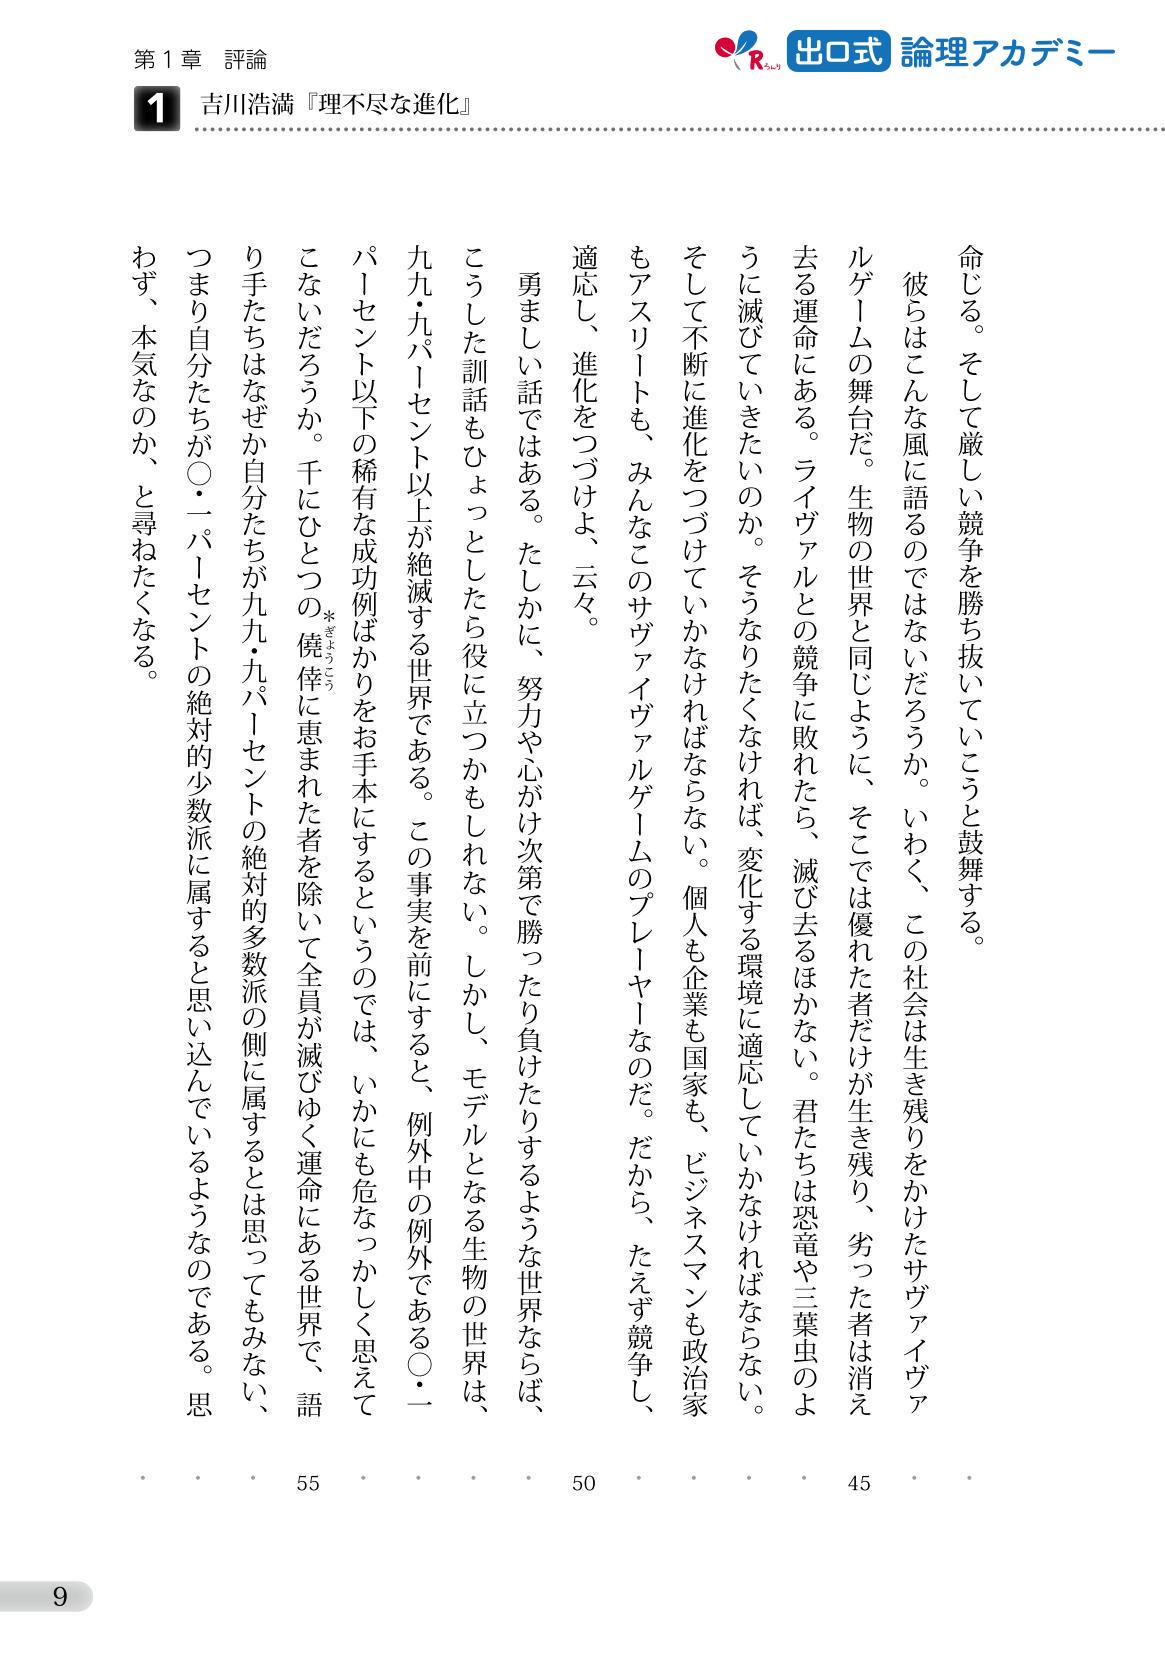 第1章　評論
Rろんり 出口式 論理アカデミー
1 吉川浩満『理不尽な進化』
命じる。そして厳しい競争を勝ち抜いていこうと鼓舞する。
　彼らはこんな風に語るのではないだろうか。いわく、この社会は生き残りをかけたサヴァイヴァ
ルゲームの舞台だ。生物の世界と同じように、そこでは優れた者だけが生き残り、劣った者は消え
去る運命にある。ライヴァルとの競争に敗れたら、滅び去るほかない。君たちは恐竜や三葉虫のよ
うに滅びていきたいのか。そうなりたくなければ、変化する環境に適応していかなければならない。
そして不断に進化をつづけていかなければならない。個人も企業も国家も、ビジネスマンも政治家
もアスリートも、みんなこのサヴァイヴァルゲームのプレーヤーなのだ。だから、たえず競争し、
適応し、進化をつづけよ、云々。
　勇ましい話ではある。たしかに、努力や心がけ次第で勝ったり負けたりするような世界ならば、
こうした訓話もひょっとしたら役に立つかもしれない。しかし、モデルとなる生物の世界は、
九九・九パーセント以上が絶滅する世界である。この事実を前にすると、例外中の例外である〇・一
パーセント以下の稀有な成功例ばかりをお手本にするというのでは、いかにも危なっかしく思えて
こないだろうか。千にひとつの＊僥倖ぎょうこうに恵まれた者を除いて全員が滅びゆく運命にある世界で、語
り手たちはなぜか自分たちが九九・九パーセントの絶対的多数派の側に属するとは思ってもみない、
つまり自分たちが〇・一パーセントの絶対的少数派に属すると思い込んでいるようなのである。思
わず、本気なのか、と尋ねたくなる。
45
50
55
9